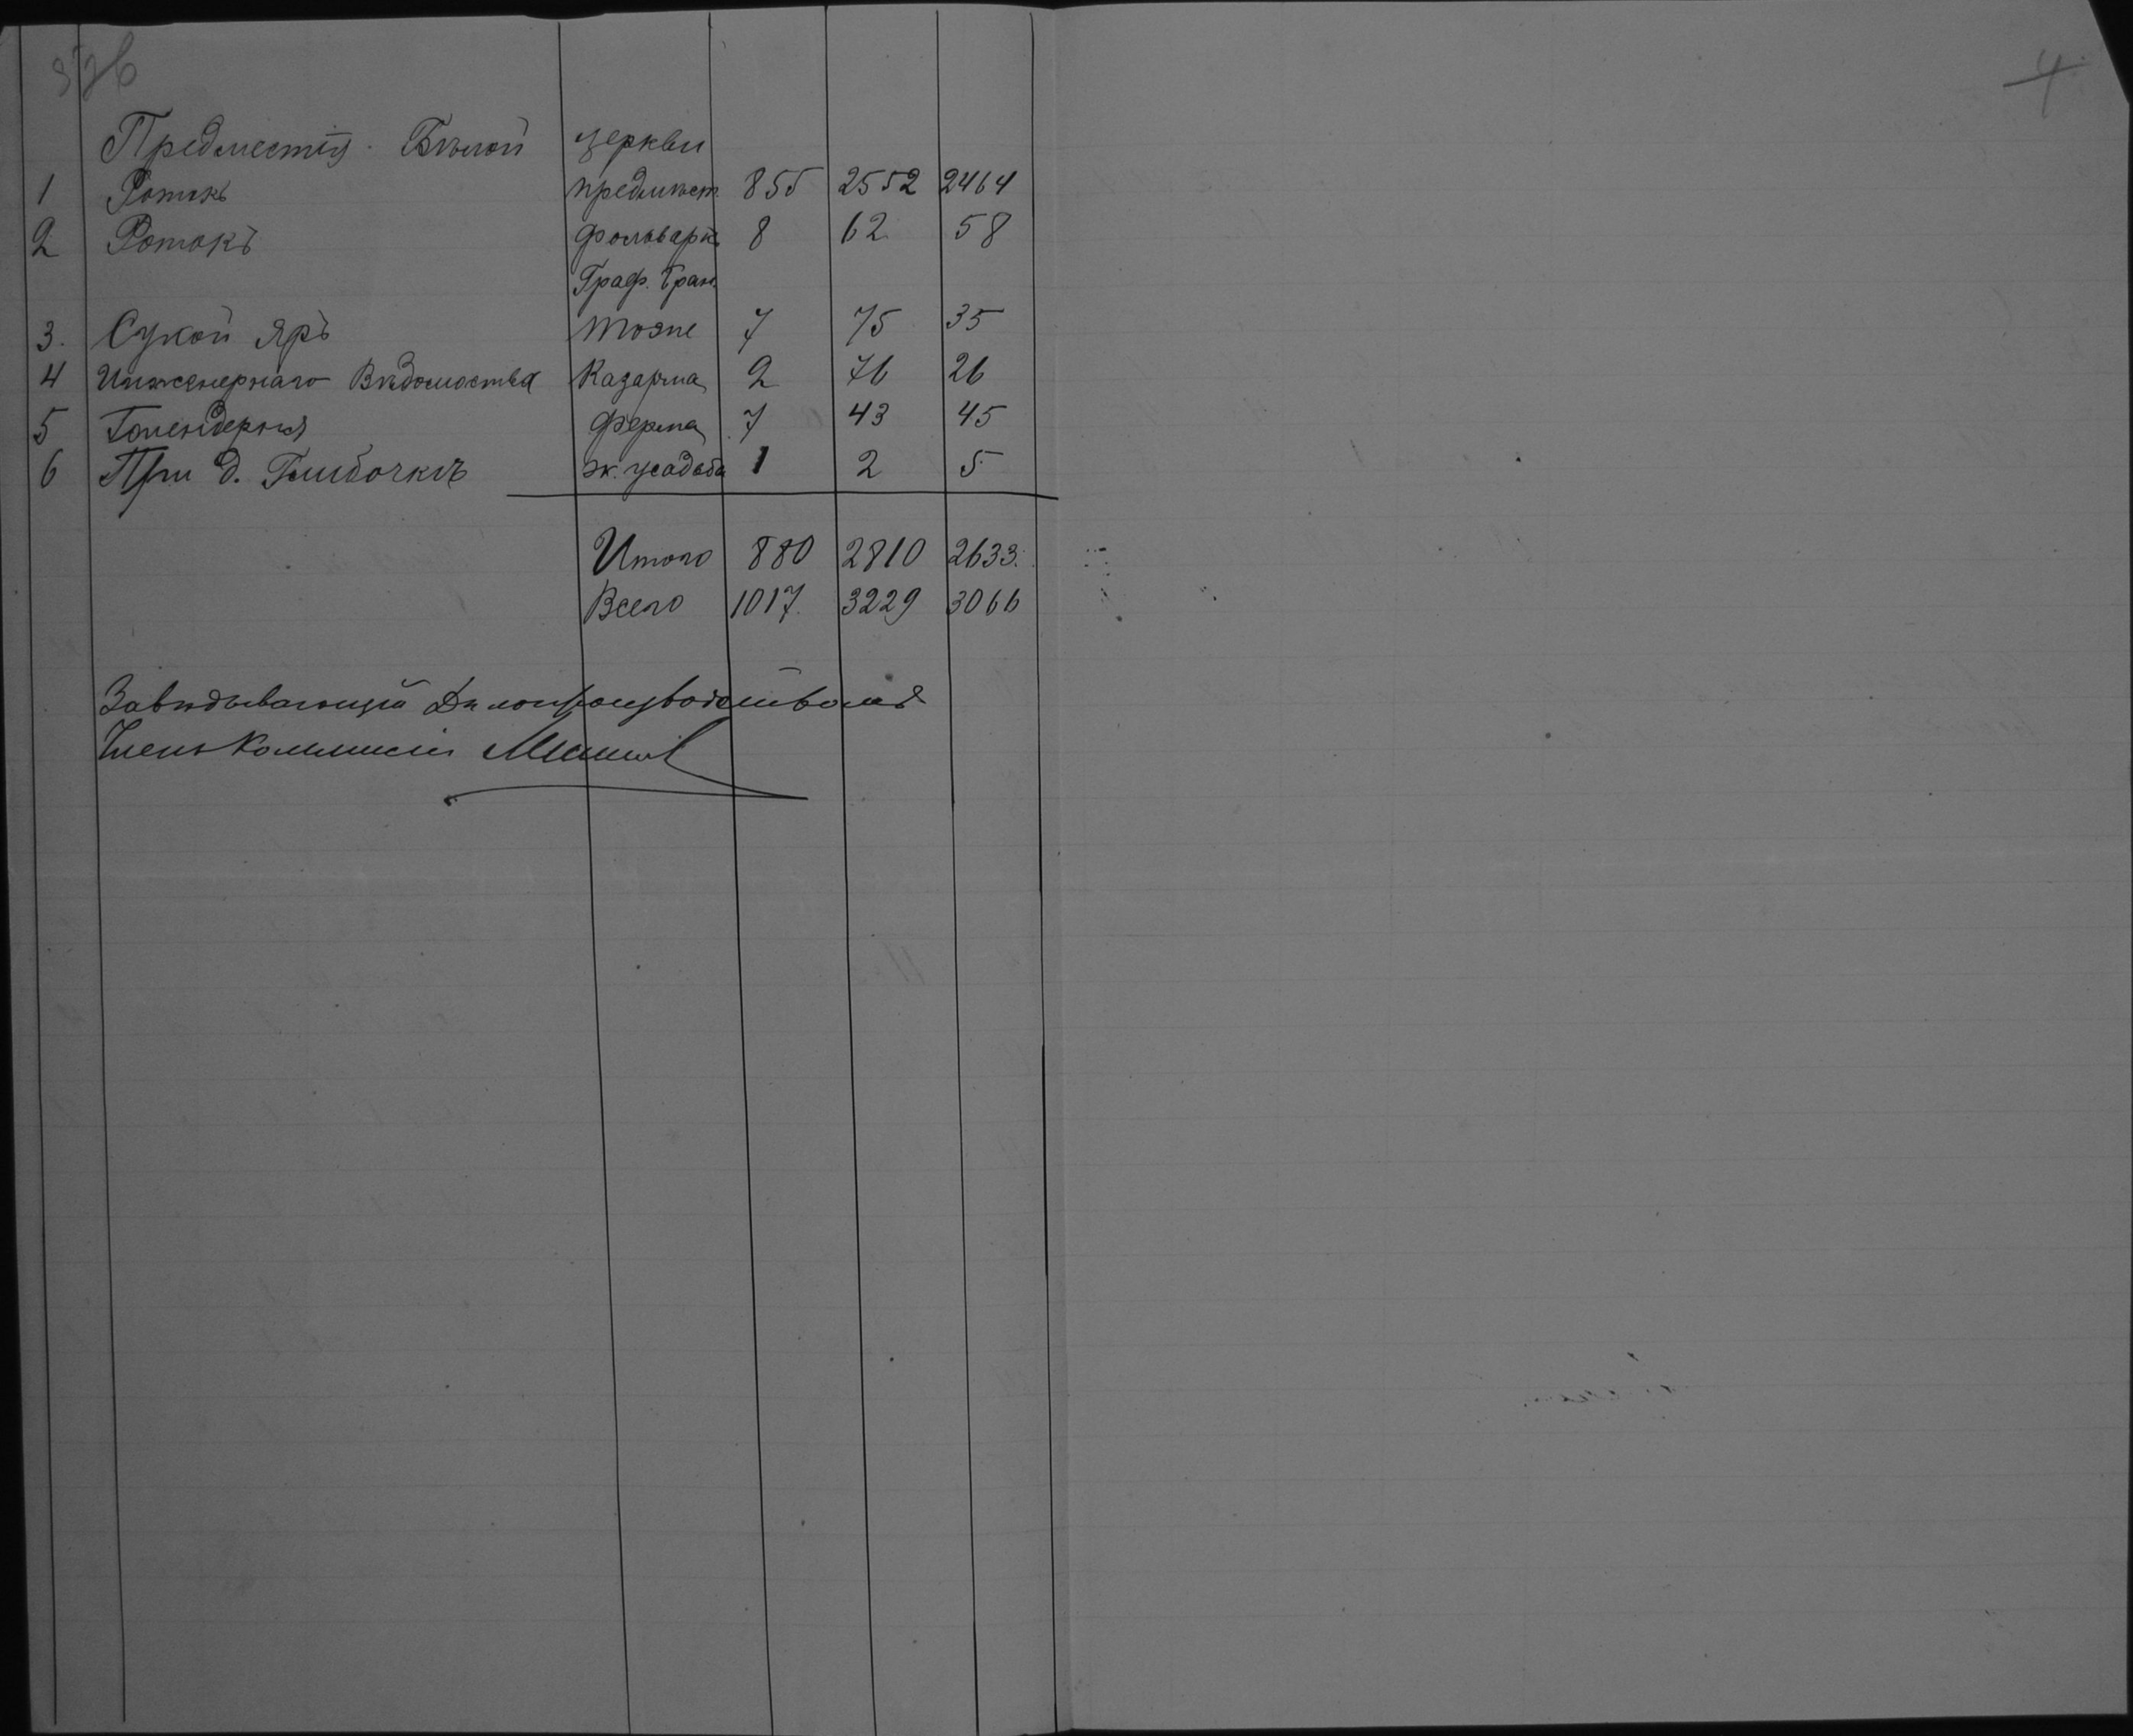 Предместія Бѣлой Церкви
1 Ротокъ предмѣст. 855 2552 2464
2 Ротокъ фольварк. 8 62 58
Граф. Бран.
3. Сухой Яръ тоже 7 75 35
4 Инженернаго Вѣдомства Казарма 2 76 26
5 Голендерня ферма 7 43 45
6 При д. Глибочкѣ эк. усадьба 1 2 5
Итого 880 2810 2633.
Всего 1017. 3229 3066
Завѣдывающій Дѣлопроизводствомъ
Членъ Коммисіи
4